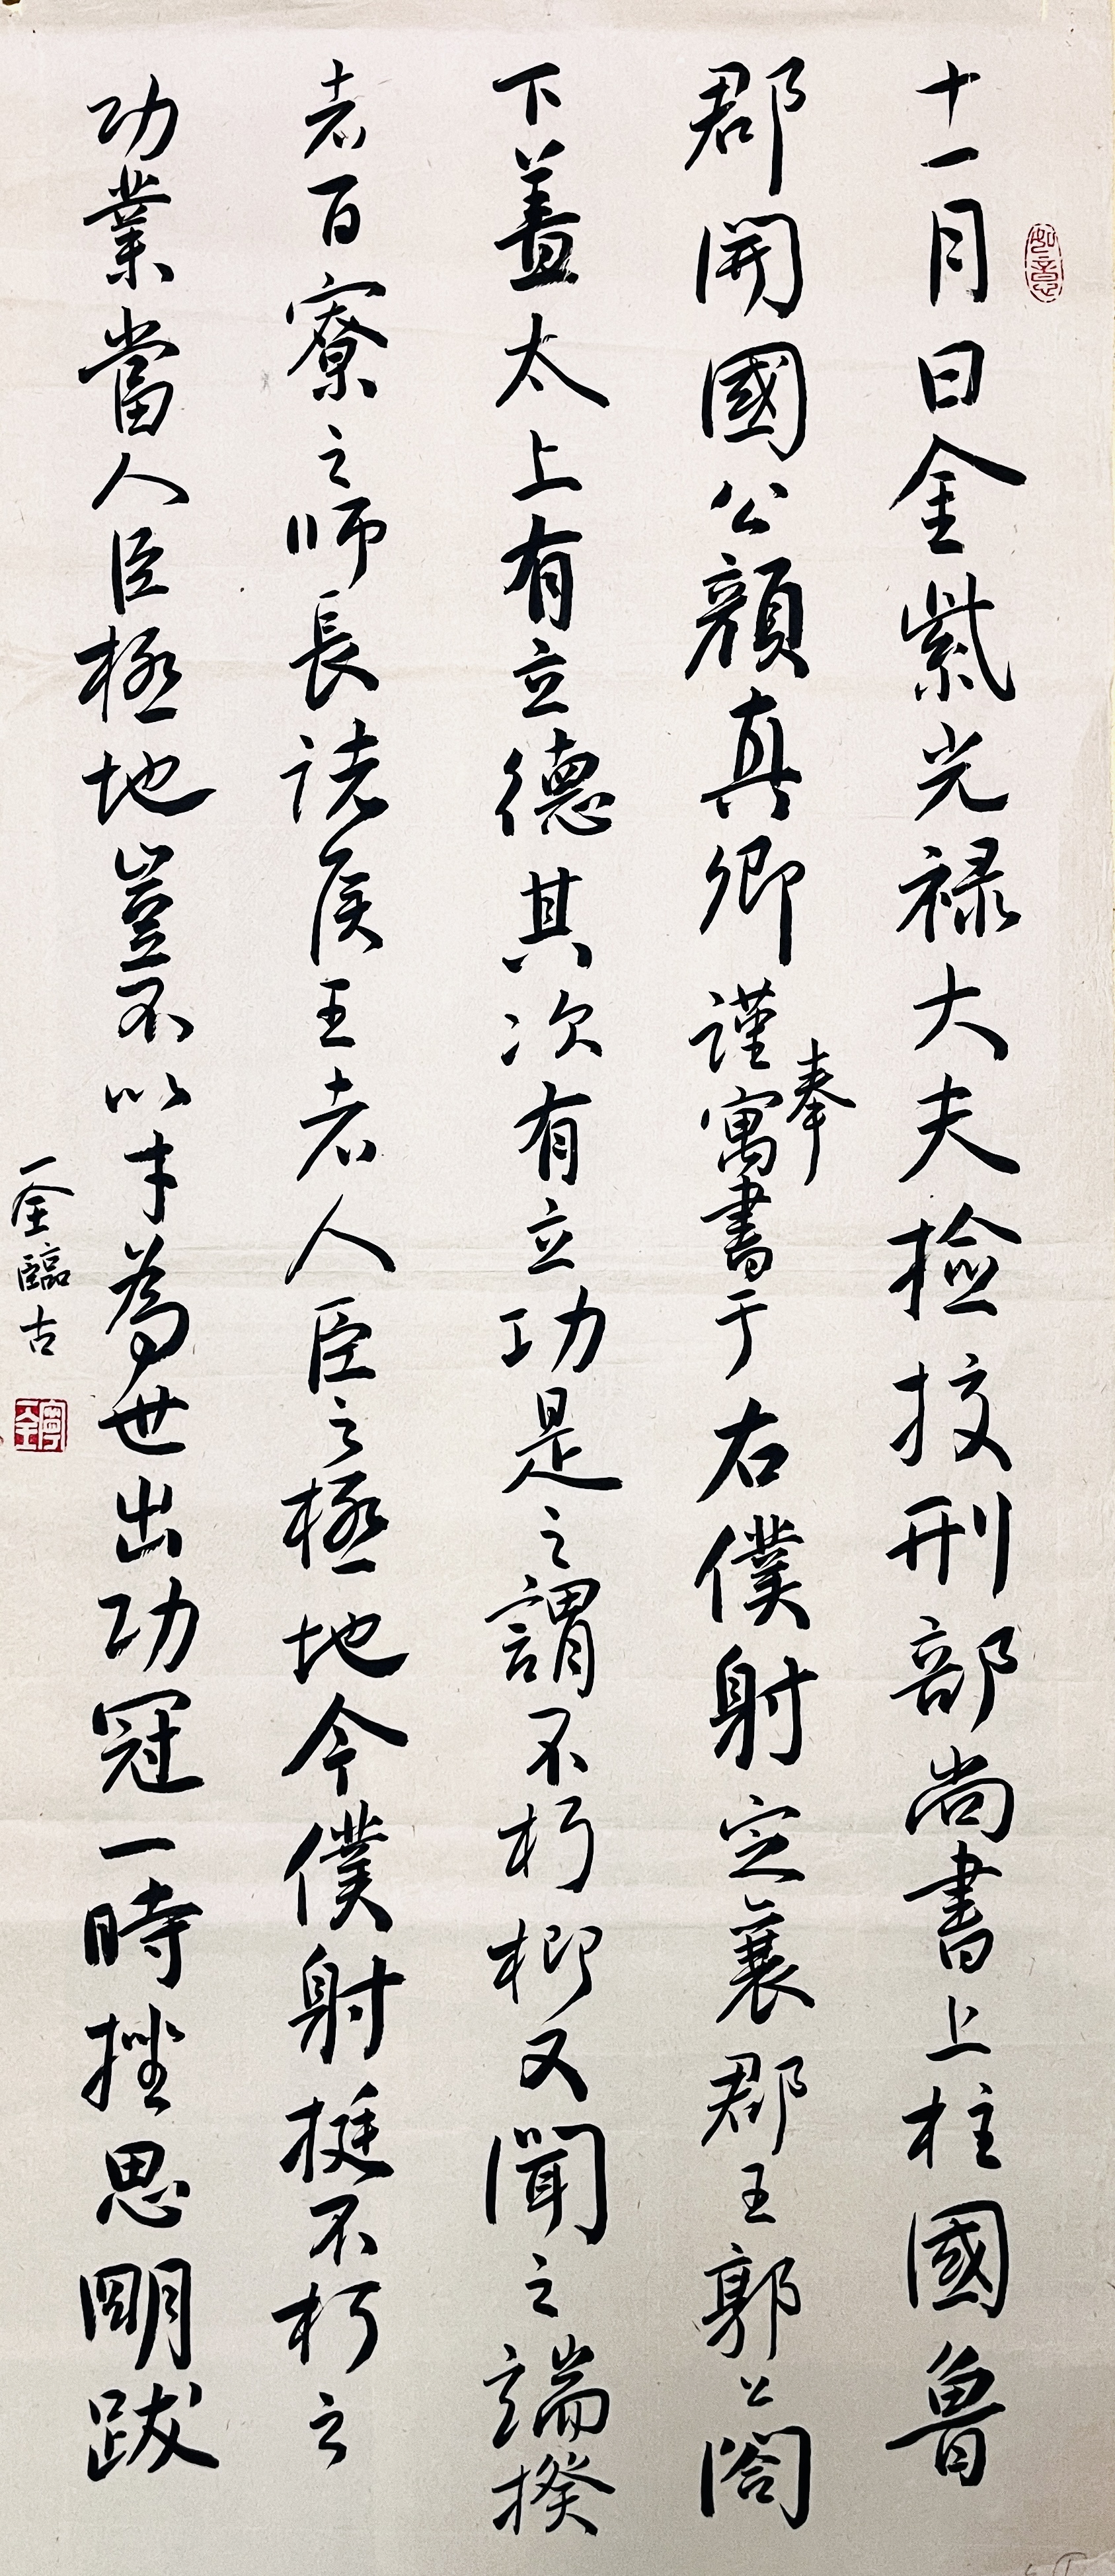 如意
十一月日金紫光禄大夫捡挍刑部尚書上柱國魯
郡開國公顔真卿謹奉寓書于右僕射定襄郡王郭公閤
下蓋太上有立德其次有立功是之謂不朽抑又聞之端揆
者百寮之師長諸侯王者人臣之極地今僕射挺不朽之
功業當人臣極地豈不以才為世出功冠一時挫思明跋
一全臨古